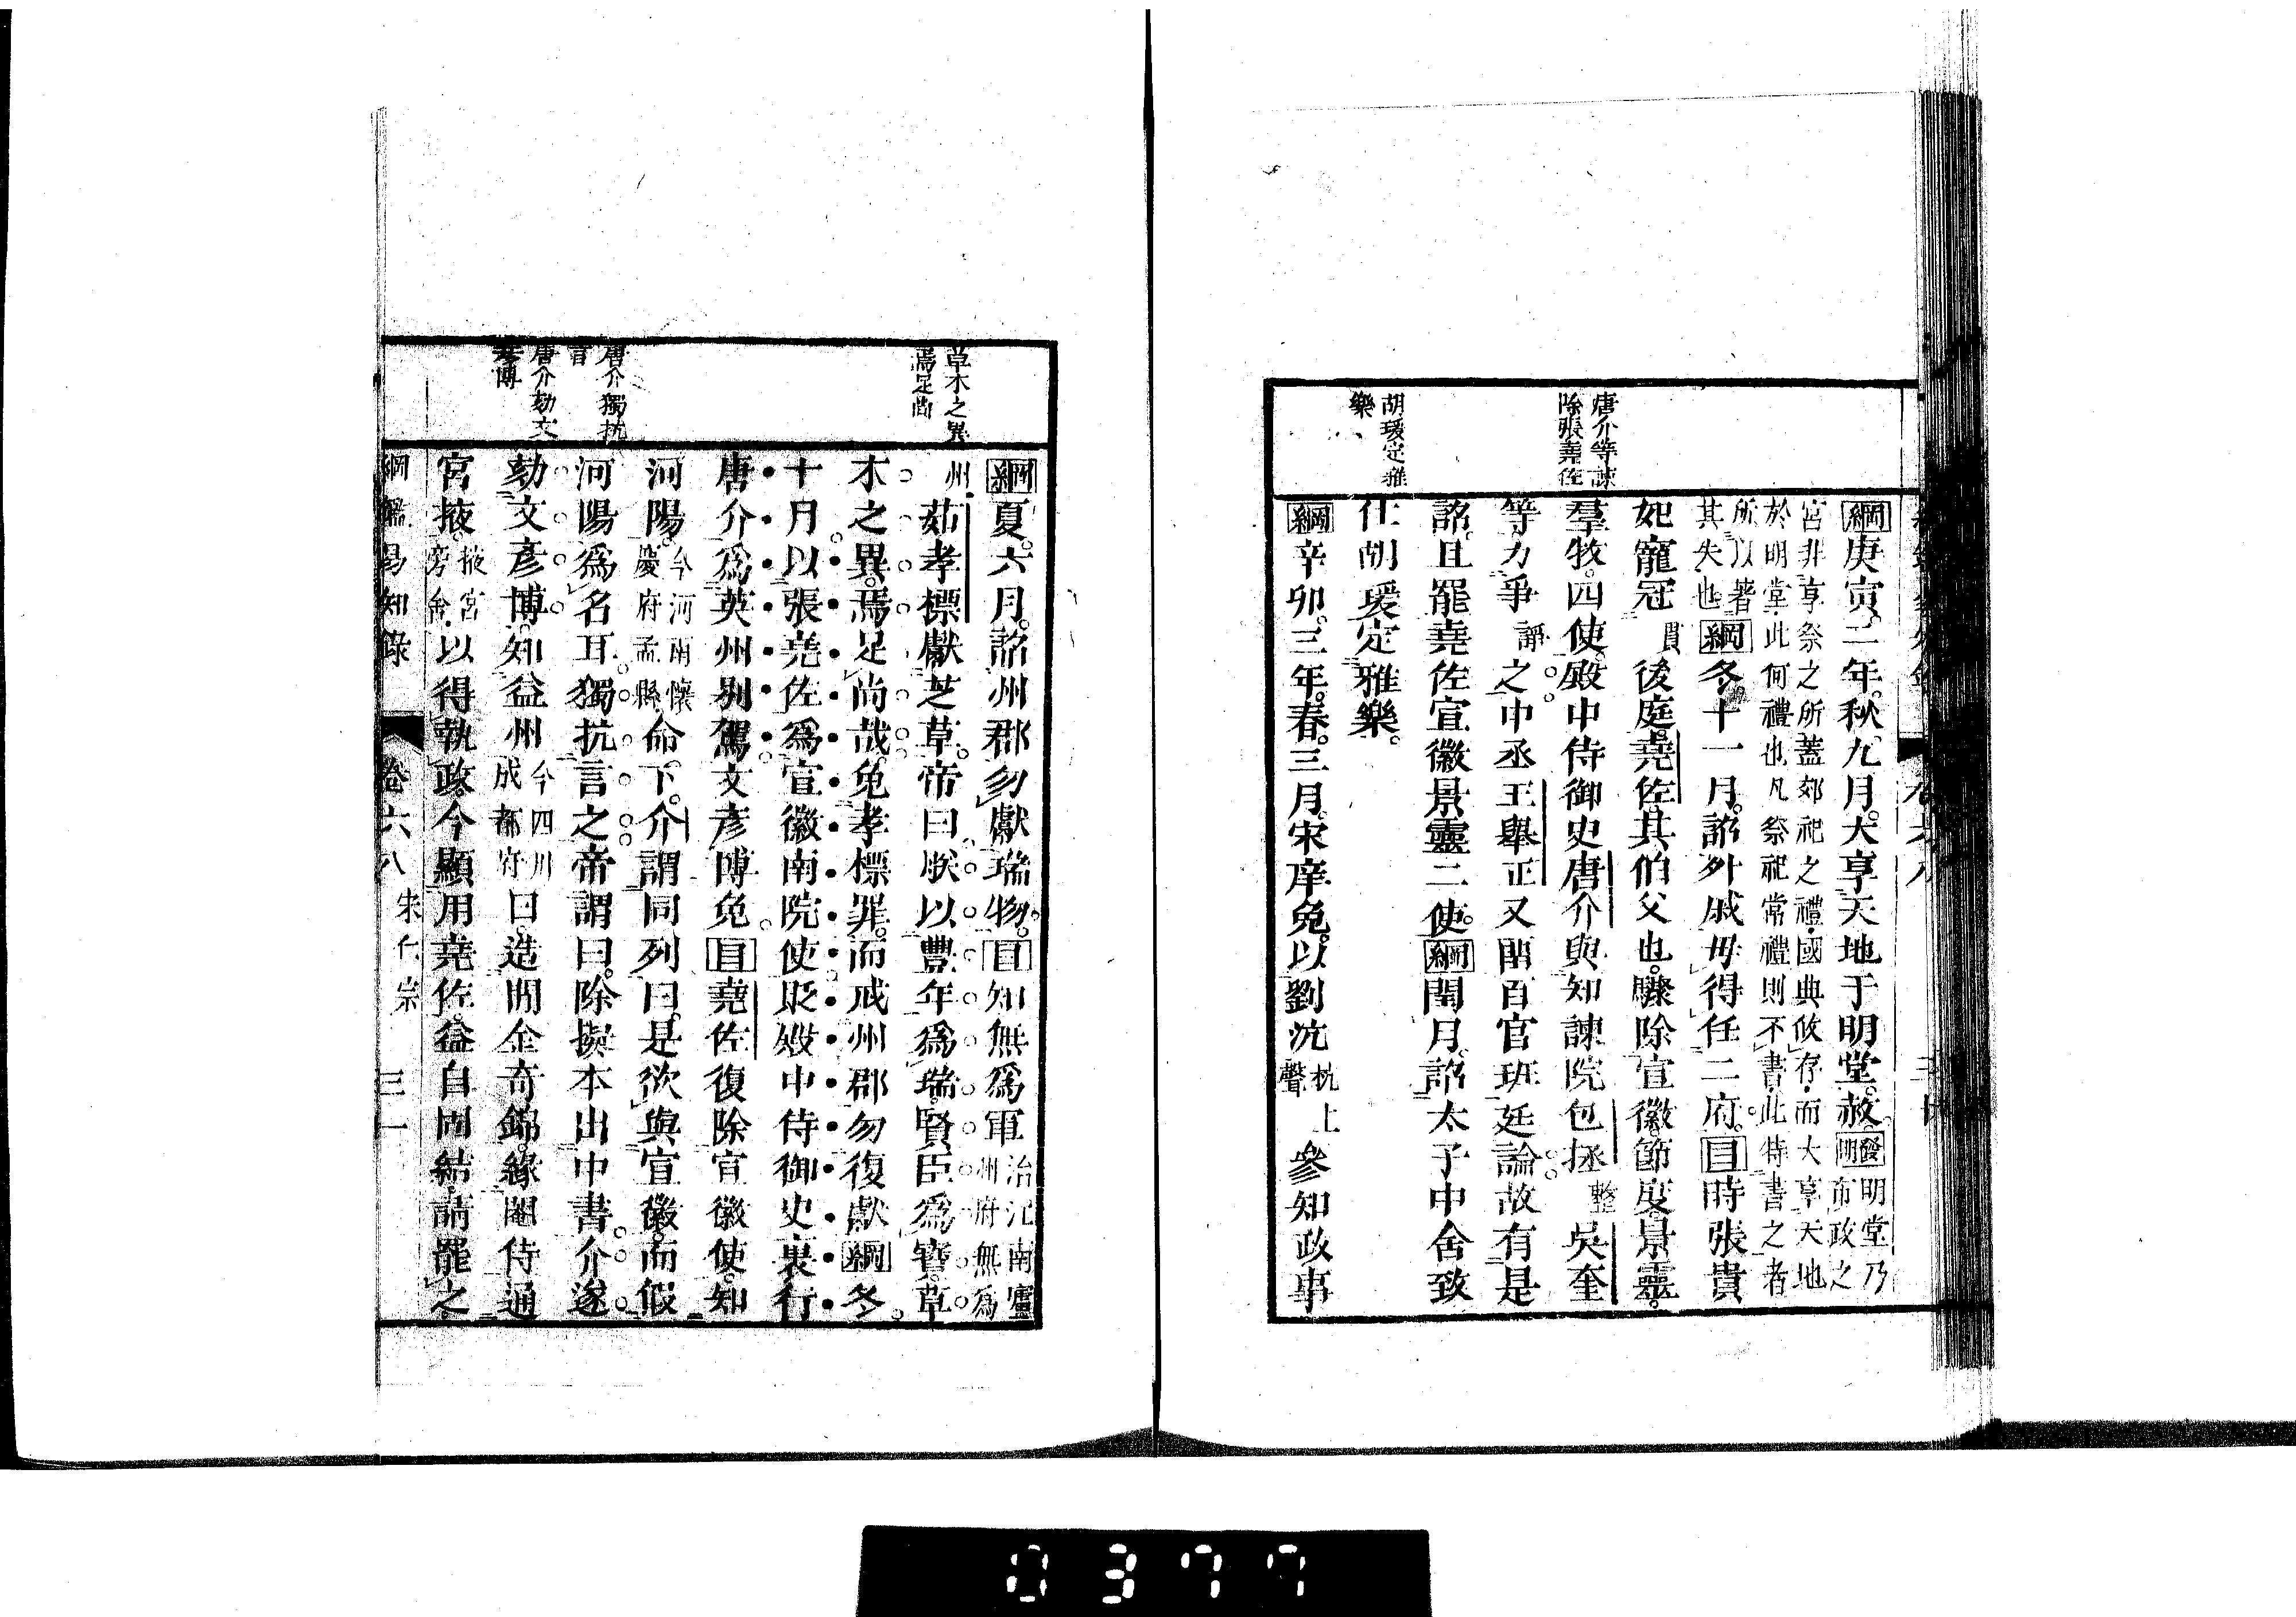 唐介等諫
除張堯佐
胡瑗定雅
樂
綱庚寅二年秋九月大享天地于明堂赦發明明堂乃布政之
宮非享祭之所蓋郊祀之禮國典攸存而大享天地
於明堂此何禮也凡祭祀常禮則不書此特書之者
所以著其失也綱冬十一月詔外戚毋得任二府目時張貴
妃寵冠貫後庭堯佐其伯父也驟除宣徽節度景靈
羣牧四使殿中侍御史唐介與知諫院包拯整吳奎
等力爭諍之中丞王舉正又留百官班廷論故有是
詔且罷堯佐宣徽景靈二使綱閏月詔太子中舍致
仕胡瑗定雅樂
綱辛卯三年春三月宋庠免以劉沆杭上聲參知政事
草木之異
焉足尚
唐介獨抗
言
唐介劾文
彥博
綱夏六月詔州郡勿獻瑞物目知無爲軍治江南廬州府無爲
州茹孝標獻芝草帝曰朕以豐年爲瑞賢臣爲寶草
木之異焉足尚哉免孝標罪而戒州郡勿復獻綱冬
十月以張堯佐爲宣徽南院使貶殿中侍御史裏行
唐介爲英州別駕文彥博免目堯佐復除宣徽使知
河陽今河南懷慶府孟縣命下介謂同列曰是欲與宣徽而假
河陽爲名耳獨抗言之帝謂曰除擬本出中書介遂
劾文彥博知益州今四川成都府曰造間金奇錦緣閹侍通
宮掖掖宮旁舍以得執政今顯用堯佐益自固結請罷之
綱鑑易知錄 卷六八 宋仁宗 三一
0377